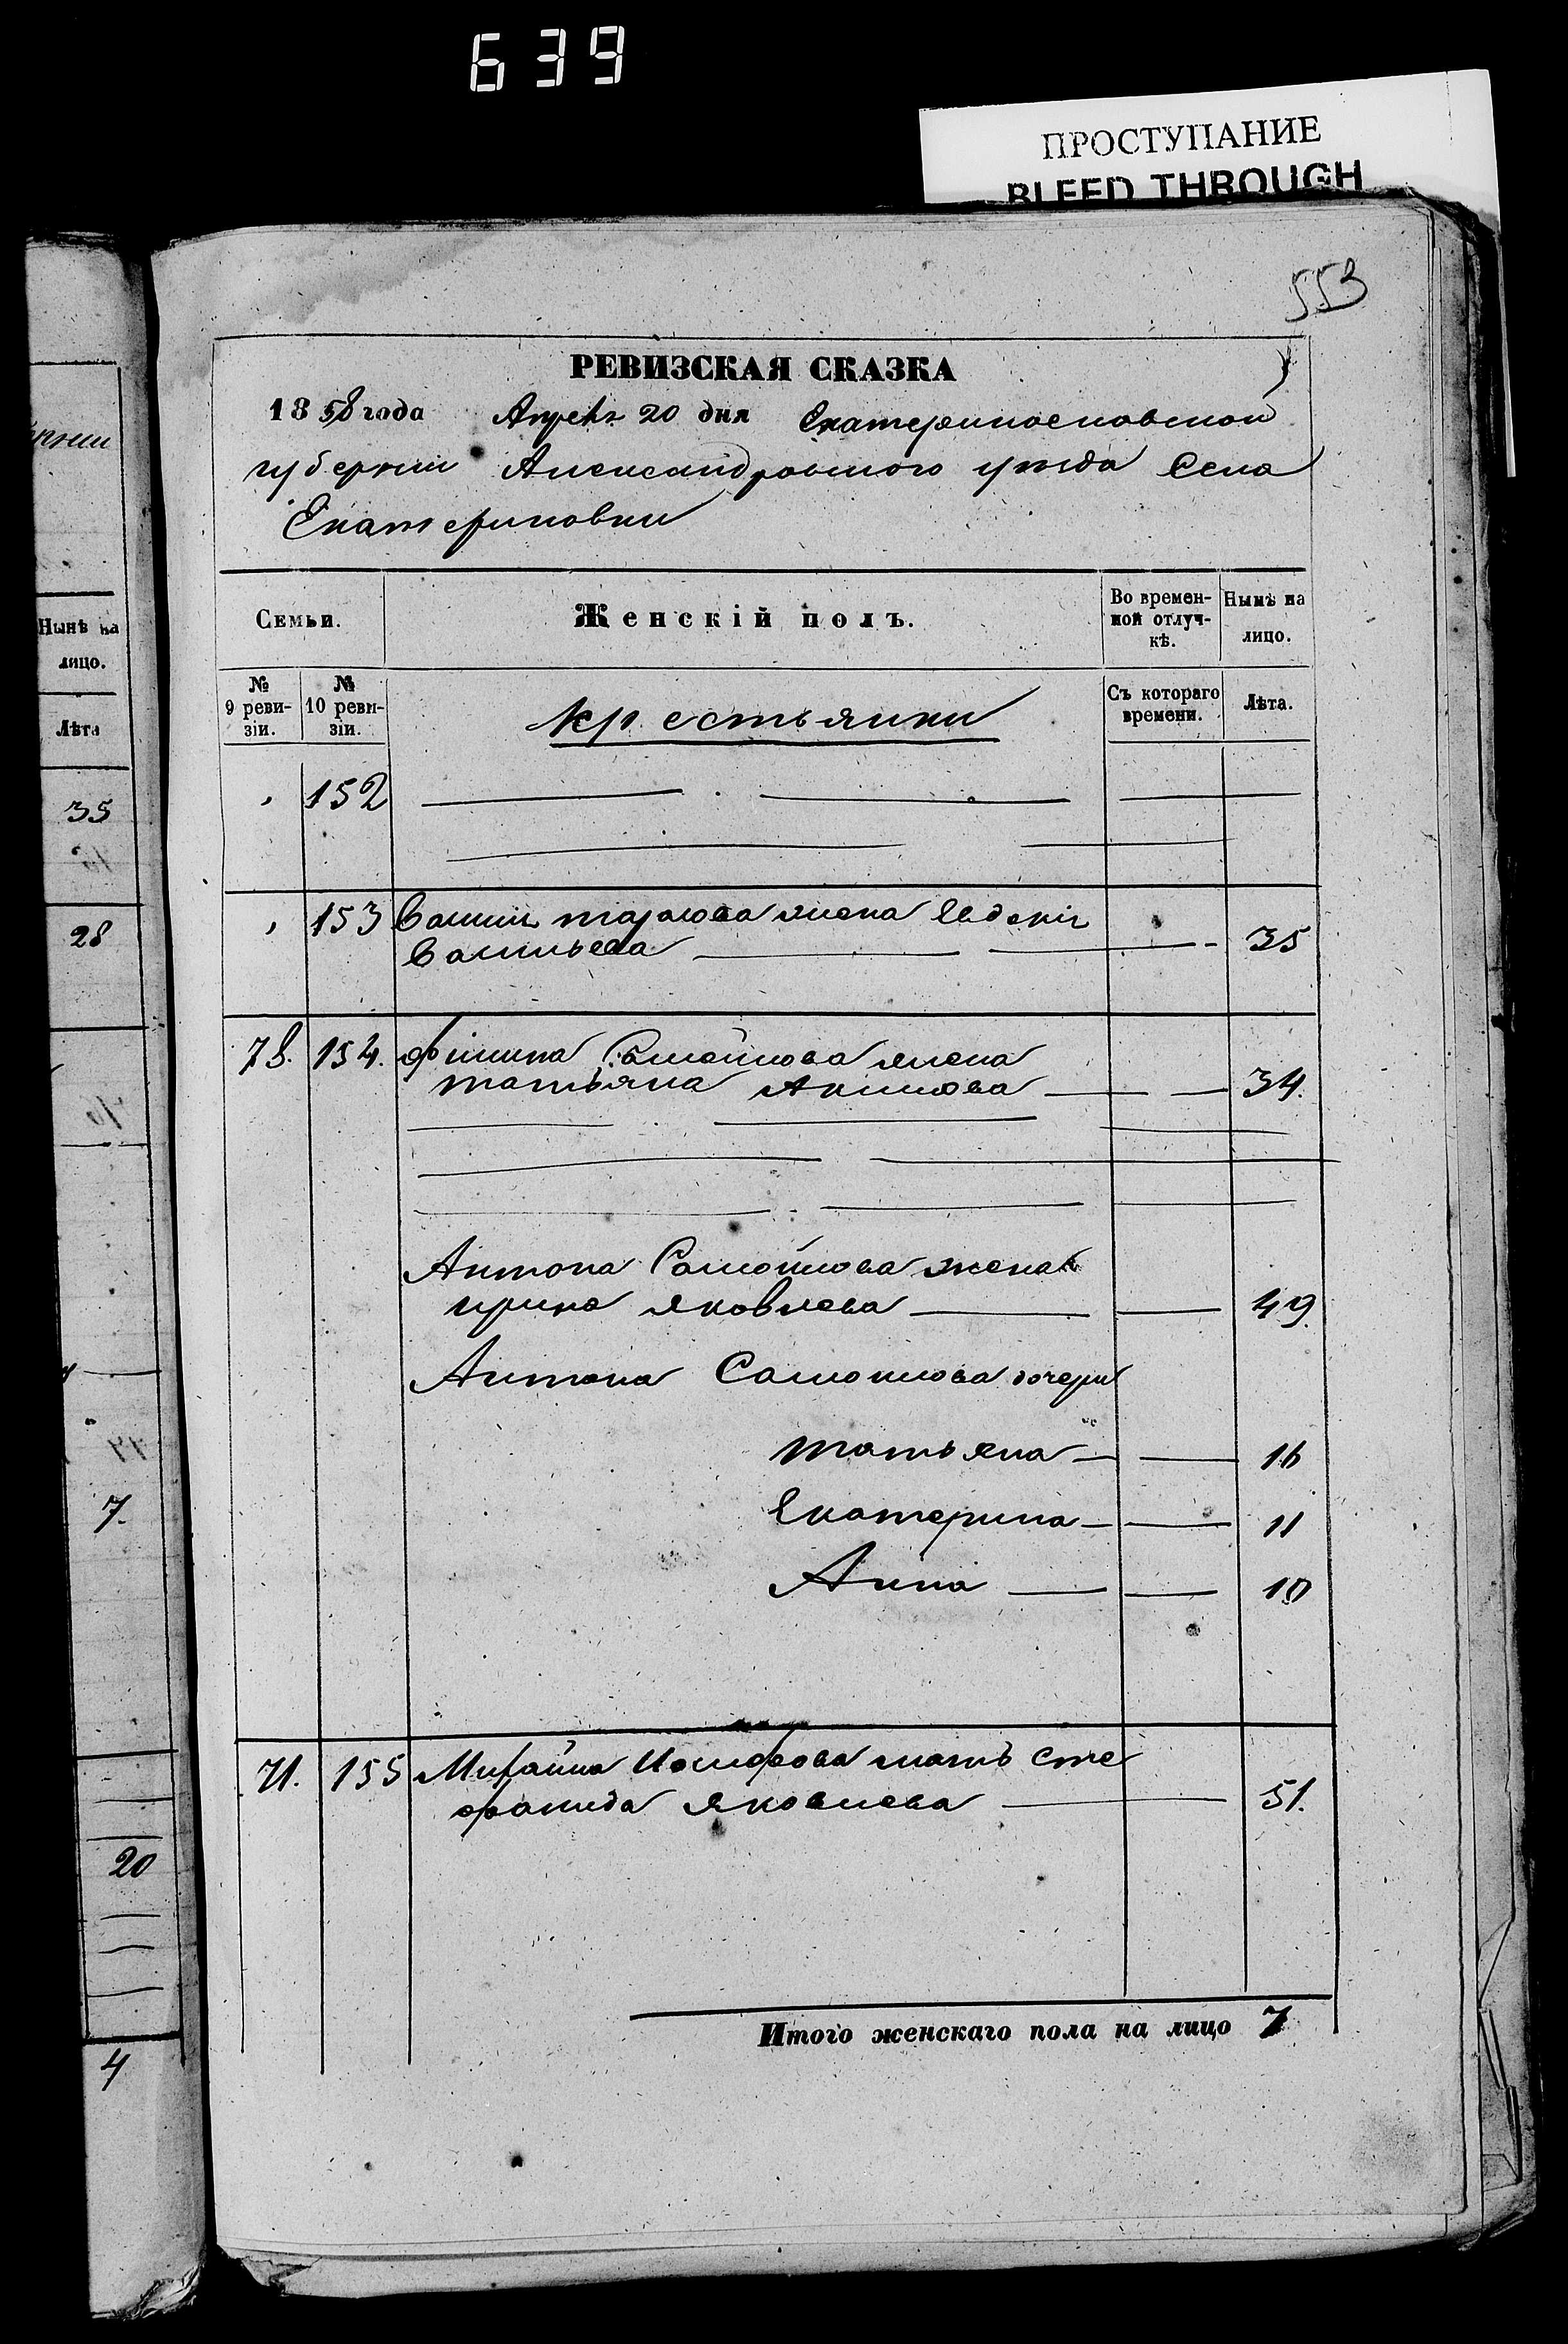 639
ПРОСТУПАНИЕ
BLEED THROUGH
553
РЕВИЗСКАЯ СКАЗКА
1858 года Апреля 20 дня Екатеринославской
губернии Александровского уезда Села
Екатериновки
Семьи.
Женскій полъ.
Во времен-
ной отлуч-
кѣ.
Нынѣ на
лицо.
№
9 реви-
зіи.
№
10 реви-
зіи.
крестьянки
Съ котораго
времени.
Лѣта.
152
153 жена Евдокия
Васильева 35
78. 154. Самойлова жена
татьяна Акимова 34.
Антона Самойлова жена
ирина яковлева 49.
Антона Самойлова дочери
татьяна 16
Екатерина 11
Анна 10
71. 155 Михайла Иосифова мать Сте
фанида яковлева 51.
Итого женскаго пола на лицо 7
Нынѣ на
лицо.
Лѣта
35
28
7.
20
4